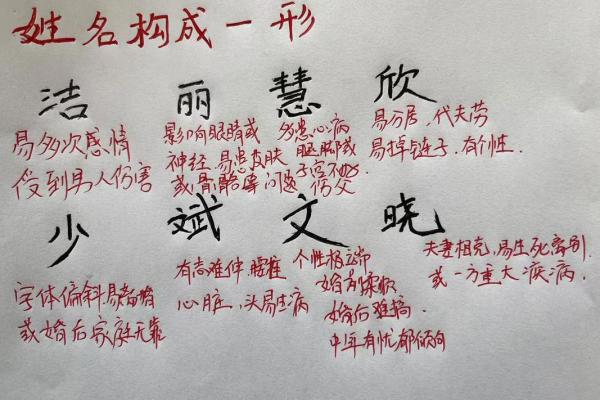 姓名构成一形
洁 丽 慧 欣
易多次感情
受到男人伤害
影响眼睛或
神经.易患皮肤
或骨骼等问题
多患心病
肢脚或
子宫不好.
伤父
易分居.代夫劳
易掉链子.有个性.
少 斌 文 晓
字体偏斜易离婚
或婚后家庭无靠
有志难伸.腰椎
心脏.头易生病
个性极端
婚前柔软
婚后难搞.
中年有忧郁倾向
夫妻相克,易生死离别.
或一方重大疾病.